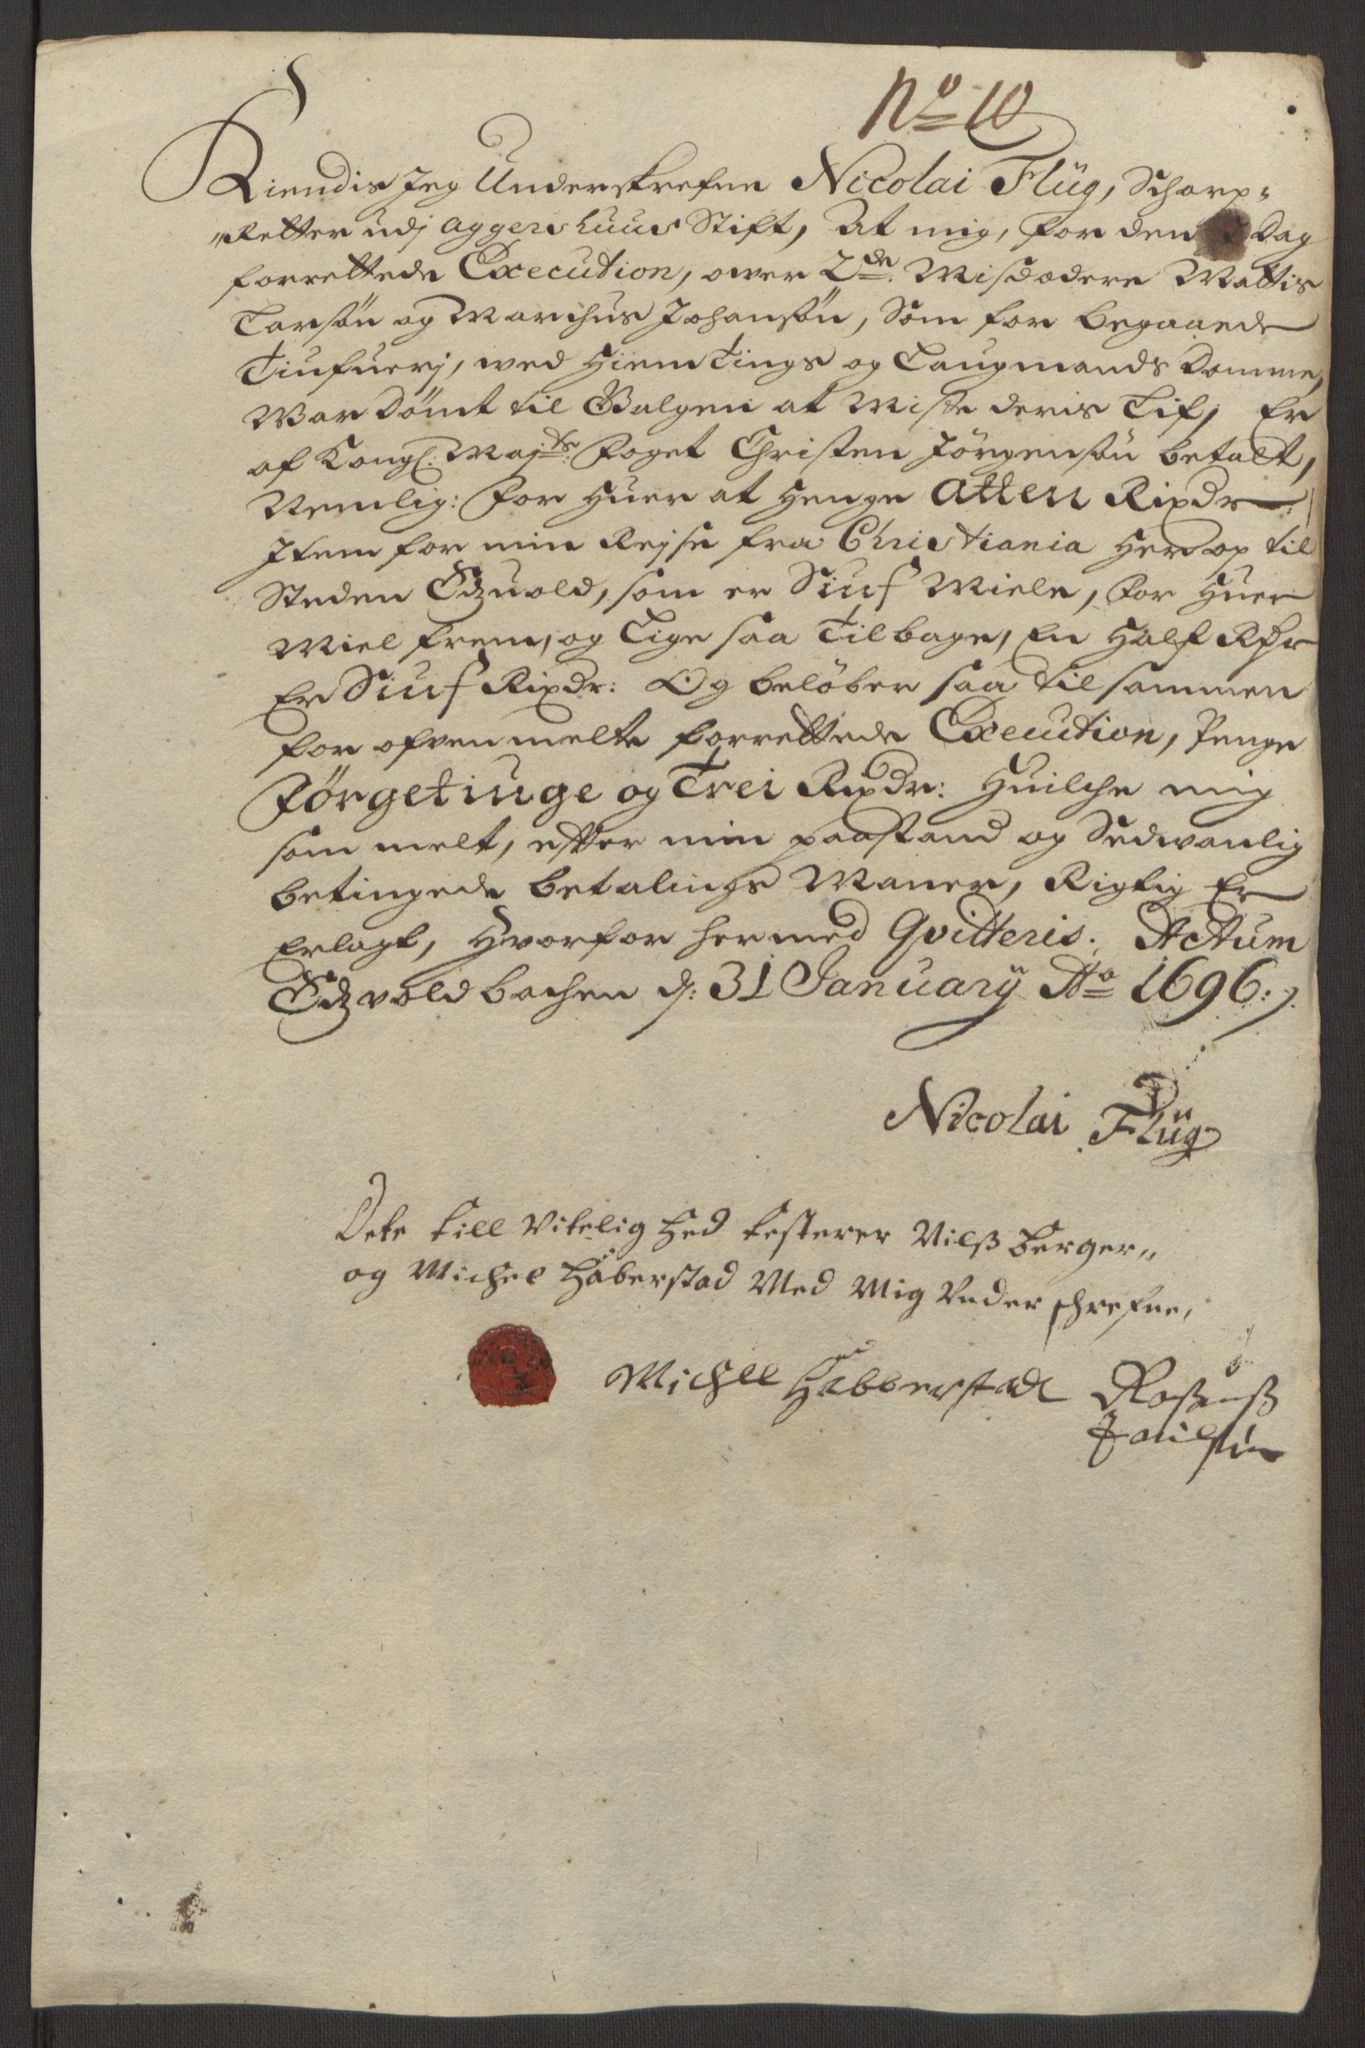 No 10
Kiendis Jeg Underskrefne Nicolai Flüg, Scharp-
Retter udj Aggershuus Stift, At mig, for den Dag
forrettede Execution, over 2de Misdædere Mattis
Larsøn og Marchus Johansøn, Som for begaaede
Tiufuerj, wed Hiemtings og Laugmands Domme,
War dømt til Galgen at Miste deris Lif, Er
af Kongl: Majts: Foget Christen Jörgensøn betalt,
Nemlig: For Huer at Henge Atten Rixdr:
Item for min Rejse fra Christiania Her op til
Steden Edzuold, som er Siuf Miele, For Huer
Miel frem, og Lige saa Tilbage, En Half Rdr
Er Siuf Rixdr: Og beløber saa tilsammen
for ofvenmelte forrettede Execution, Penge
Förgetiuge og Trei Rixdr: Huilche mig
som melt, efter min paastand og Sedwanlig
betingede betalings Maner, Rigtig Er
Erlagt, Hvorfor hermed Qvitteris. Actum
Edzvold bachen d: 31 January Ao 1696:
Nicolai Flüg
Dete till Vitelig Hed testerer Nilß Berger
og Michel Håberstad Med Mig Underschrefne,
Michell Habberstadt Rasmuß
Poulsøn